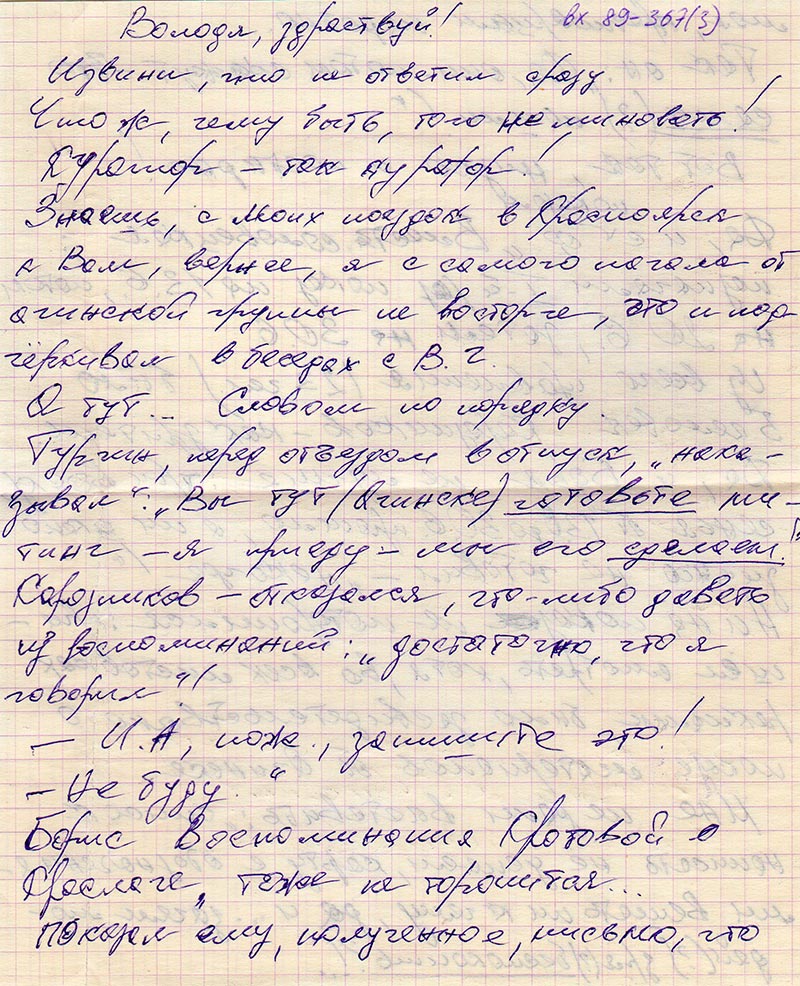 вх 89-367(3)
Володя, здраствуй!
Извини, что не ответил сразу.
Что ж, чему быть, того не миновать!
Куратор – так куратор!
Знаешь, с моих поездок в Красноярск
к Вам, вернее, я с самого начала от
ачинской группы не восторге, это и под-
чёркивал в беседах с В. Г.
А тут... Словом по порядку.
Тургин, перед отъездом в отпуск, „нака-
зывал": „Вы тут (Ачинске) готовьте ми-
тинг – я приеду – мы его сделаем!"
– отказался, что-либо давать
из воспоминаний: „достаточно, что я
говорил"!
– И.А, пож., запишите это!
– Не буду."
Борис Воспоминания Кротовой о
Краслаге„ тоже не торопится...
Показал ему, полученное, письмо, что